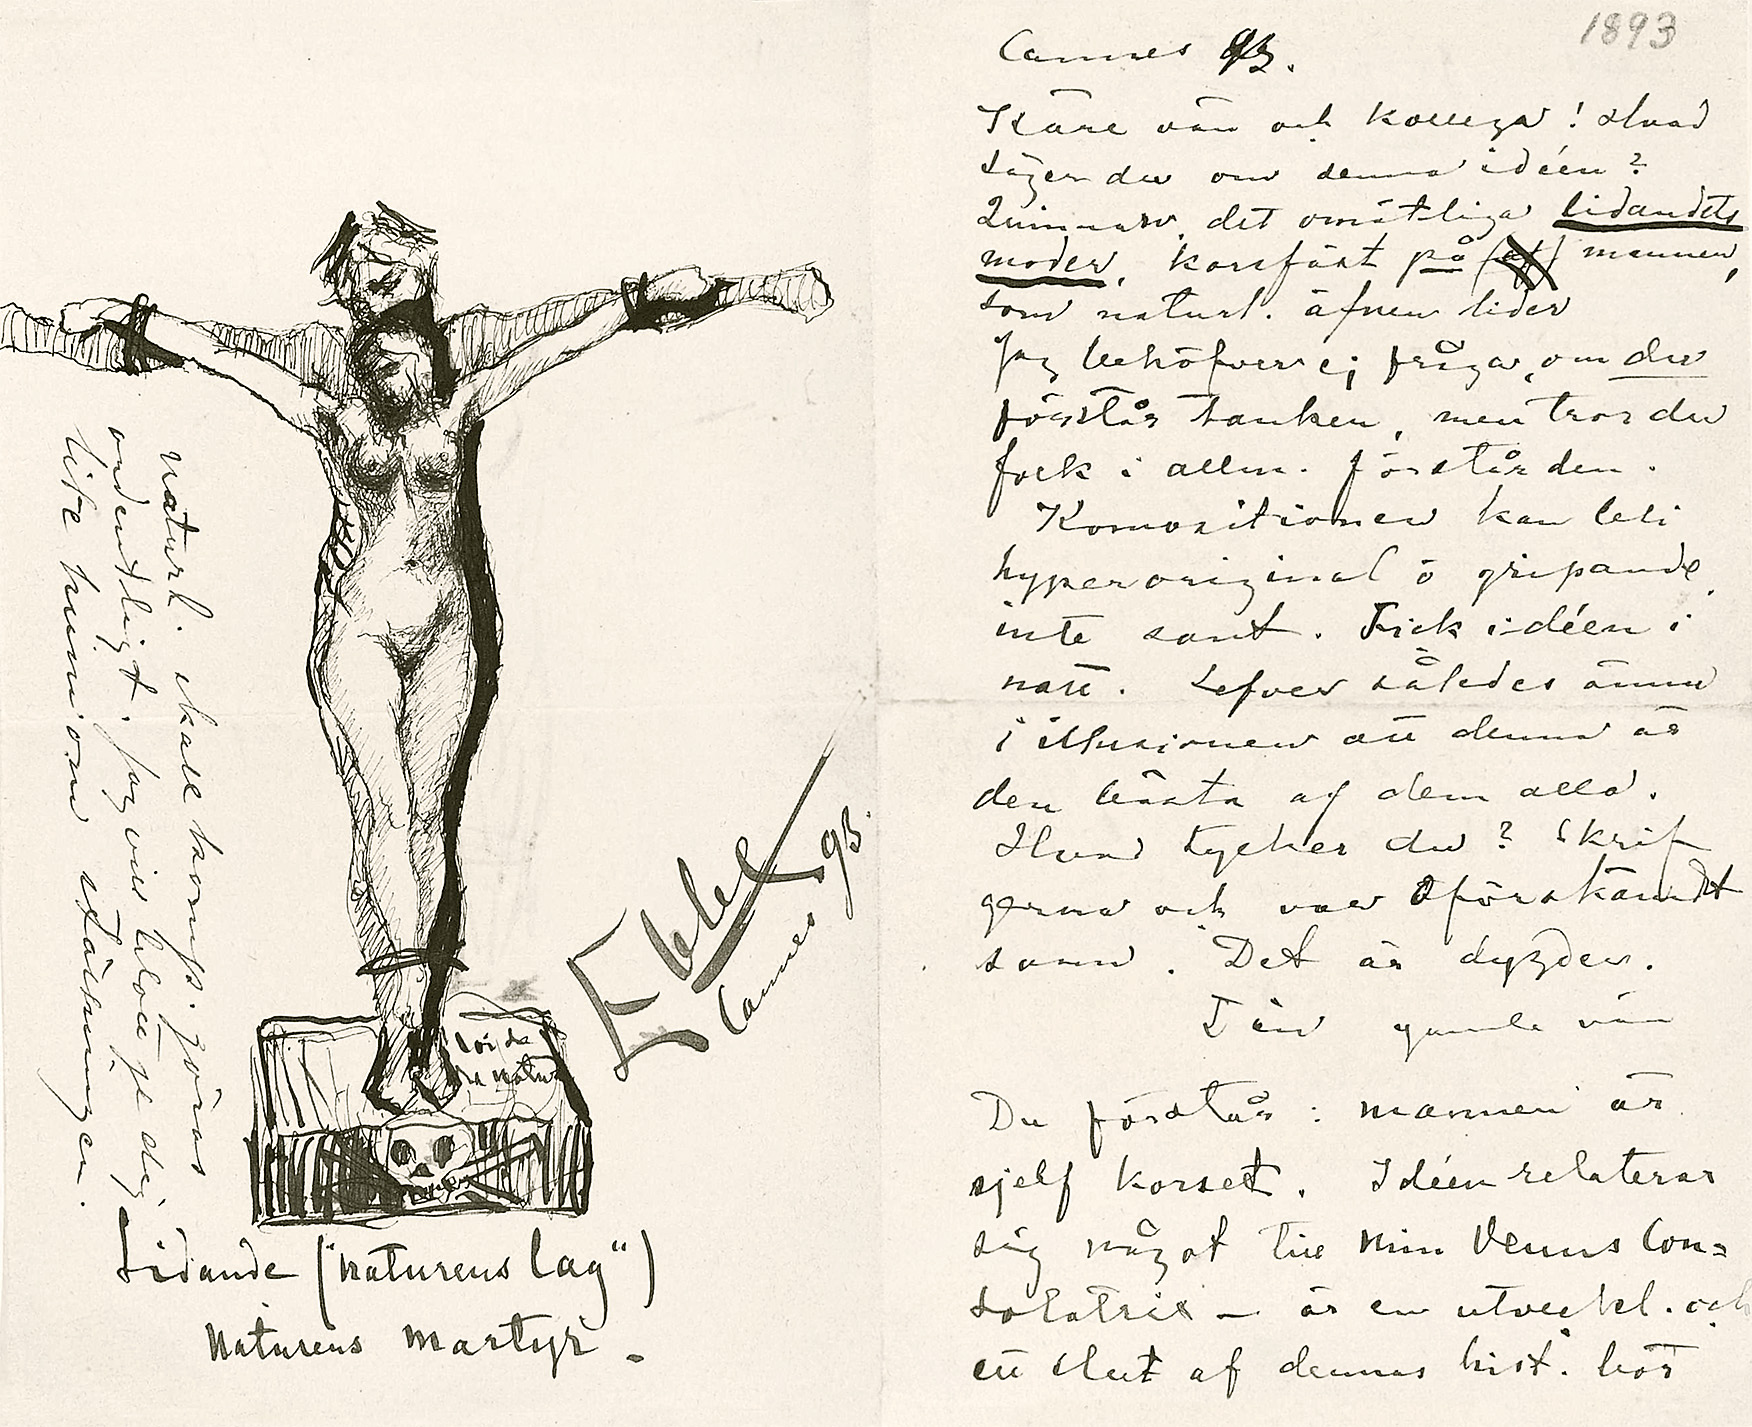 naturl. skall komps. göras
ordentligt. Jag vill blott ge dig
lite hum om ställningen.
loi de
la natur
Ebbe
Cannes 93.
Lidande ("naturens lag")
Naturens martyr.
1893
Cannes 93.
Käre vän och kollega! Hvad
säger du om denna idéen?
Quinnan, det omätliga lidandets
moder, korsfäst på (af) mannen,
som naturl. äfven lider
Jag behöfver ej fråga, om du
förstår tanken, men tror du
folk i allm. förstår den.
Kompositionen kan bli
hyperoriginal o gripande,
inte sant. Fick idéen i
natt. Lefver således ännu
i illusionen att denna är
den bästa af dem alla.
Hvad tycker du? Skrif
gerna och var oförskämdt
sann. Det är dygden.
Din gamle vän
Du förstår: mannen är
sjelf korset. Idéen relaterar
sig något till min Venus Con=
solatrix – är en utveckl. och
ett slut af dennas hist. bör